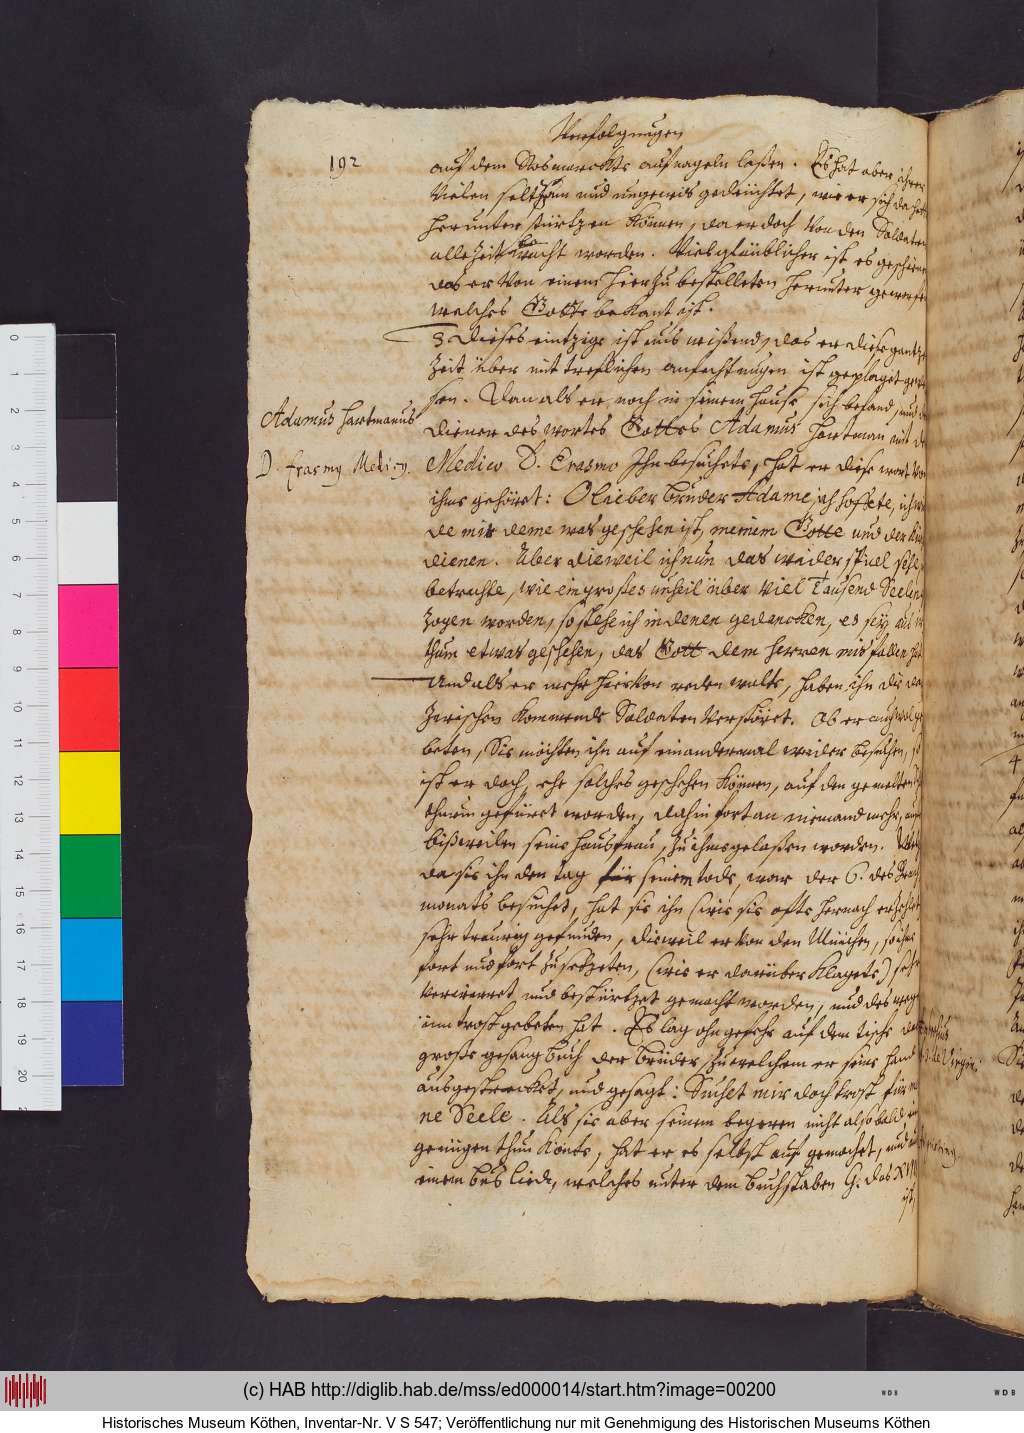 Verfolgungen
192
auf dem Rosmarckte aufnageln laßen. Es hat aber ihrer
vielen seltzam und ungewis gedeüchtet, wie er sich da hette
herunter stürtzen können, da er doch von den Soldaten
allezeit bewacht worden. Viel glaüblicher ist es geschienen
das er von einem hierzu bestelleten herunter geworfen
welches Gotte bekant ist.
3 Dieses eintzige ist uns wißend, das er diese gantze
Zeit über mit treflichen anfechtungen ist geplaget gewe
sen. Dan als er noch in seinem hause sich befand, und
Adamus Hartmanus
diener des wortes Gottes Adamus Hartman mit de
D. Erasmus Medicus
Medico D. Erasmo Ihn besuchete, hat er diese wort von
ihme gehöret: O lieber Bruder Adame, ich hoffete, ich wür
de mit deme was geschehen ist, meinem Gotte und der Kir
dienen. Aber dieweil ich nun das widerspiel sehe,
betrachte, wie ein großes unheil über viel Tausend Seelen
zogen worden, so stehe ich in denen gedancken, es sey
thum etwas geschehen, das Gott dem herren misfallen
Und als er mehr hiervon reden wolte, haben ihn die da
zwischen kommende Soldaten verstöret. Ob er auch wol ge
beten, Sie möchten ihn auf ein andermal wider besuchen, so
ist er doch, ehe solches geschehen können, auf den gemelten
thurm gefüret worden, dahin fortan niemand mehr,
bißweilen seine hausfrau, zu ihme gelaßen worden.
da sie ihn den tag für seinem tode, war der 6. des
monats besuchet, hat sie ihn (wie sie ofte hernach erzehlet
sehr traurig gefunden, dieweil er von den München, so ihme
fort und fort zusetzeten, (wie er darüber klagete) sehr
verwirret und bestürtzet gemacht worden, und des wegen
ümm trost gebeten hat. Es lag ohn gefehr auf dem tische das
große gesang Buch der Brüder, zu welchem er seine hand
ausgestrecket, und gesagt: Suchet mir doch trost für mei
ne Seele. Als sie aber seinem begeren nicht alsobald ein
genügen thun konte, hat er es selbst auf gemachet, und
einem Bus liede, welches unter dem Buchstaben G. das XIII
ist,
0 1 2 3 4 5 6 7 8 9 10 11 12 13 14 15 16 17 18 19 20
(c) HAB http://diglib.hab.de/mss/ed000014/start.htm?image=00200
WDB
WDB
Historisches Museum Köthen, Inventar-Nr. V S 547; Veröffentlichung nur mit Genehmigung des Historischen Museums Köthen